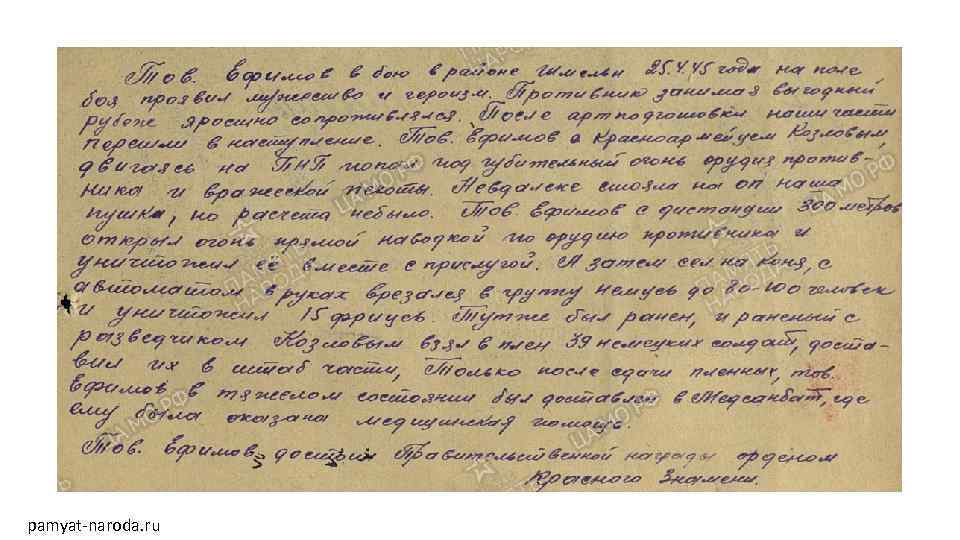 Тов. Ефимов в бою в районе Цмельн 25.4.45 года на поле
боя проявил мужество и героизм. Противник занимая выгодный
рубеж яростно сопротивлялся. После артподготовки наши части
перешли в наступление. Тов. Ефимов с Красноармейцем Козловым,
двигаясь на ПНП попал под губительный огонь орудия против-
ника и вражеской пехоты. Невдалеке стояла на оп наша
пушка, но расчета небыло. Тов. Ефимов с дистанции 300 метров
открыл огонь прямой наводкой по орудию противника и
уничтожил её вместе с прислугой. А затем сел на коня, с
автоматом в руках врезался в группу немцев до 80-100 человек
и уничтожил 15 фрицев. Тутже был ранен, и раненый с
разведчиком Козловым взял в плен 39 немецких солдат, доста-
вил их в штаб части, Только после сдачи пленных, тов.
Ефимов в тяжелом состоянии был доставлен в Медсанбат, где
ему была оказана медицинская помощь.
Тов. Ефимов достоин Правительственной награды орденом
Красного Знамени.
ЦАМО РФ
ПАМЯТЬ НАРОДА
pamyat-naroda.ru